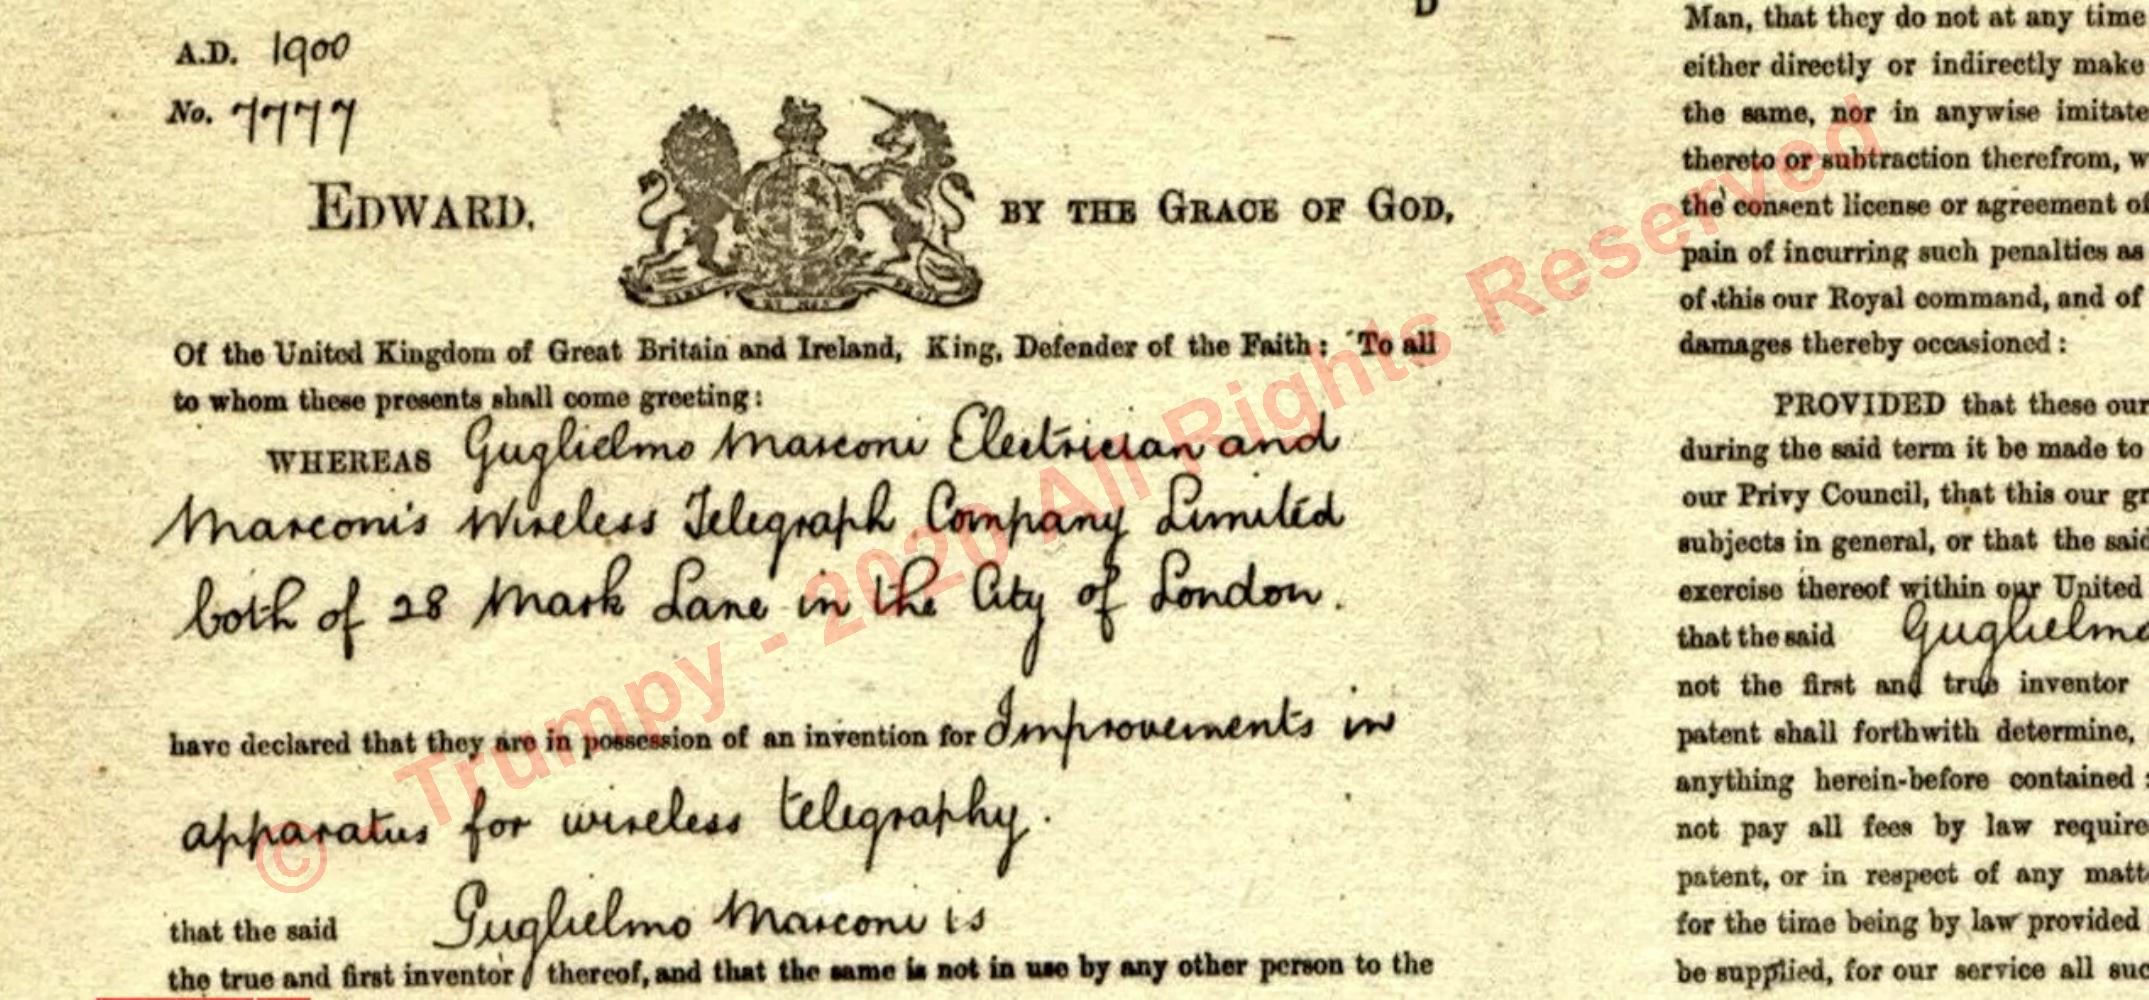 D
A.D. 1900
No. 7777
EDWARD, BY THE GRACE OF GOD,
Of the United Kingdom of Great Britain and Ireland, King, Defender of the Faith: To all
to whom these presents shall come greeting:
WHEREAS Guglielmo Marconi Electrician and
Marconi's Wireless Telegraph Company Limited
both of 28 Mark Lane in the City of London.
have declared that they are in possession of an invention for Improvements in
apparatus for wireless telegraphy.
that the said Guglielmo Marconi is
the true and first inventor thereof, and that the same is not in use by any other person to the
Man, that they do not at any time
either directly or indirectly make
the same, nor in anywise imitate
thereto or subtraction therefrom, w
the consent license or agreement of
pain of incurring such penalties as
of this our Royal command, and of
damages thereby occasioned:
PROVIDED that these our
during the said term it be made to
our Privy Council, that this our gr
subjects in general, or that the said
exercise thereof within our United
that the said Guglielmo
not the first and true inventor
patent shall forthwith determine,
anything herein-before contained:
not pay all fees by law require
patent, or in respect of any matt
for the time being by law provided
be supplied, for our service all suc
© Trumpy - 2020 All Rights Reserved